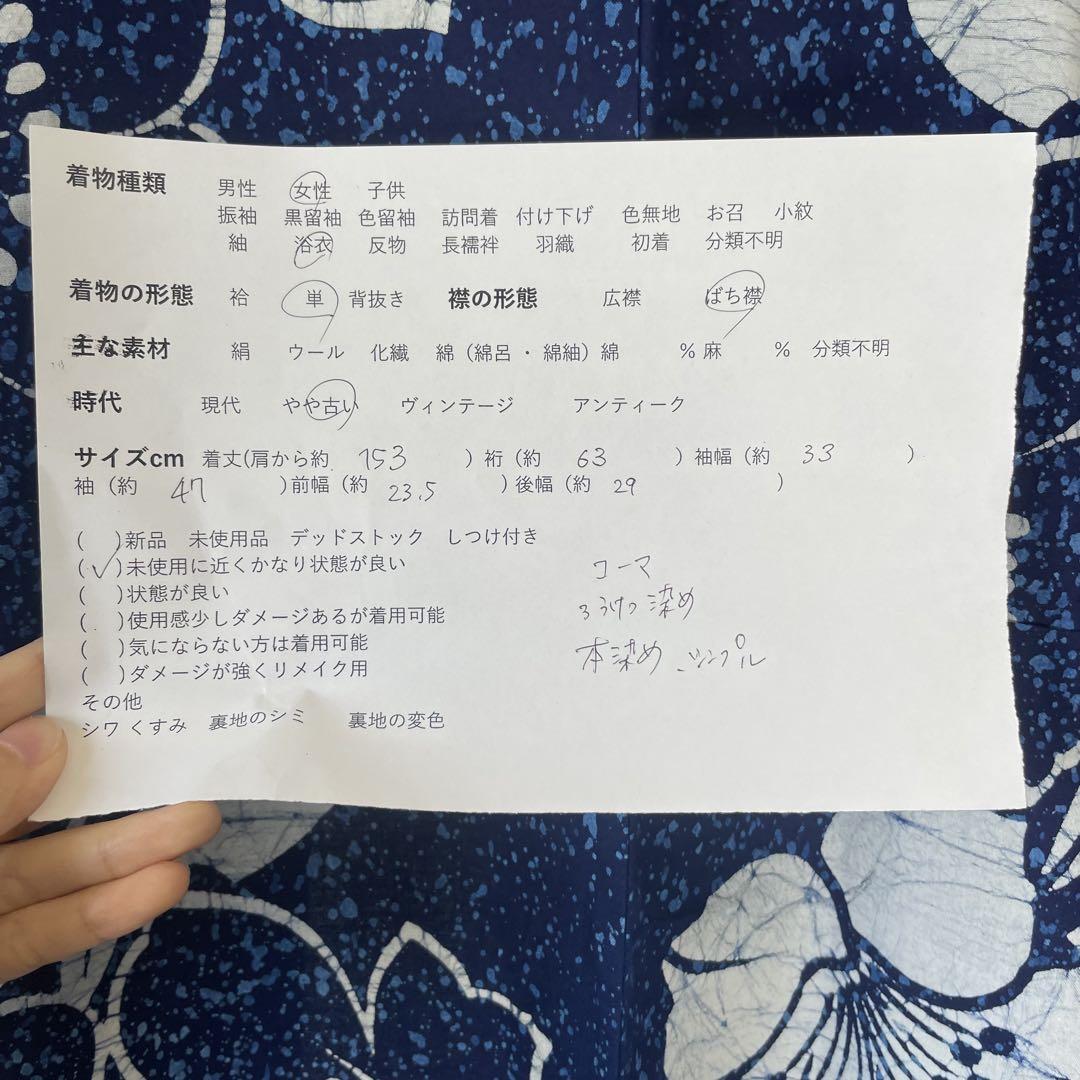 着物種類 男性 女性 子供
振袖 黒留袖 色留袖 訪問着 付け下げ 色無地 お召 小紋
紬 浴衣 反物 長襦袢 羽織 初着 分類不明
着物の形態 袷 単 背抜き 襟の形態 広襟 ばち襟
主な素材 絹 ウール 化繊 綿（綿呂・綿紬）綿 % 麻 % 分類不明
時代 現代 やや古い ヴィンテージ アンティーク
サイズcm 着丈(肩から約 153 ）裄（約 63 ）袖幅（約 33 ）
袖（約 47 )前幅（約 23.5 )後幅（約 29 )
( )新品 未使用品 デッドストック しつけ付き
(✓)未使用に近くかなり状態が良い
( )状態が良い
( )使用感少しダメージあるが着用可能
( )気にならない方は着用可能
( )ダメージが強くリメイク用
その他
シワ くすみ 裏地のシミ 裏地の変色
コーマ
ろうけつ染め
本染め シンプル